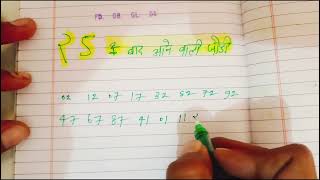 PB GB GL DS
25 के बाद आने वाली जोड़ी
02 12 07 17 32 52 72 92
47 67 87 41 01 11